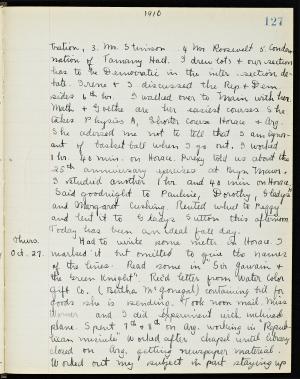 1910
127
tration, 3. Mr. Stimson 4 Mr. Roosevelt 5 Condem
nation of Tamany Hall. I drew lots & our section
has to be Democratic in the inter-section de-
bate. Irene & I discussed the Rep & Dem
sides 6th hr. I walked over to Main with her.
Math & Goethe are her easiest courses. She
takes Physics A, Shorter course Horace & Arg.
She advised me not to tell that I am ignor-
ant of basket ball when I go out. I worked
1 hr. 40 min. on Horace. Prexy told us about the
25th anniversary exercises at Bryn Mawr.
I studied another 1 hr. and 40 min on Horace.
Said goodnight to Pauline, Dorothy, Gladys
and Margaret Cushing. Rented wheel to Peggy
and lent it to Gladys Sutton this afternoon
Today has been an ideal fall day.
Thurs. Had to write some meter in Horace. I
Oct. 27. marked it but omitted to give the names
of the lines. Read some in "Sir Gawain &
the Green Knight". Rec'd letter from Water Color
Gift Co. (Bertha McGonagal) containing bill for
goods she is sending. Took noon mail. Miss
and I did experiment with inclined
plane. Spent 7th & 8th on Arg. working in Repub-
lican
closed on Arg, getting newspaper material.
Worked out my subject in part staying up